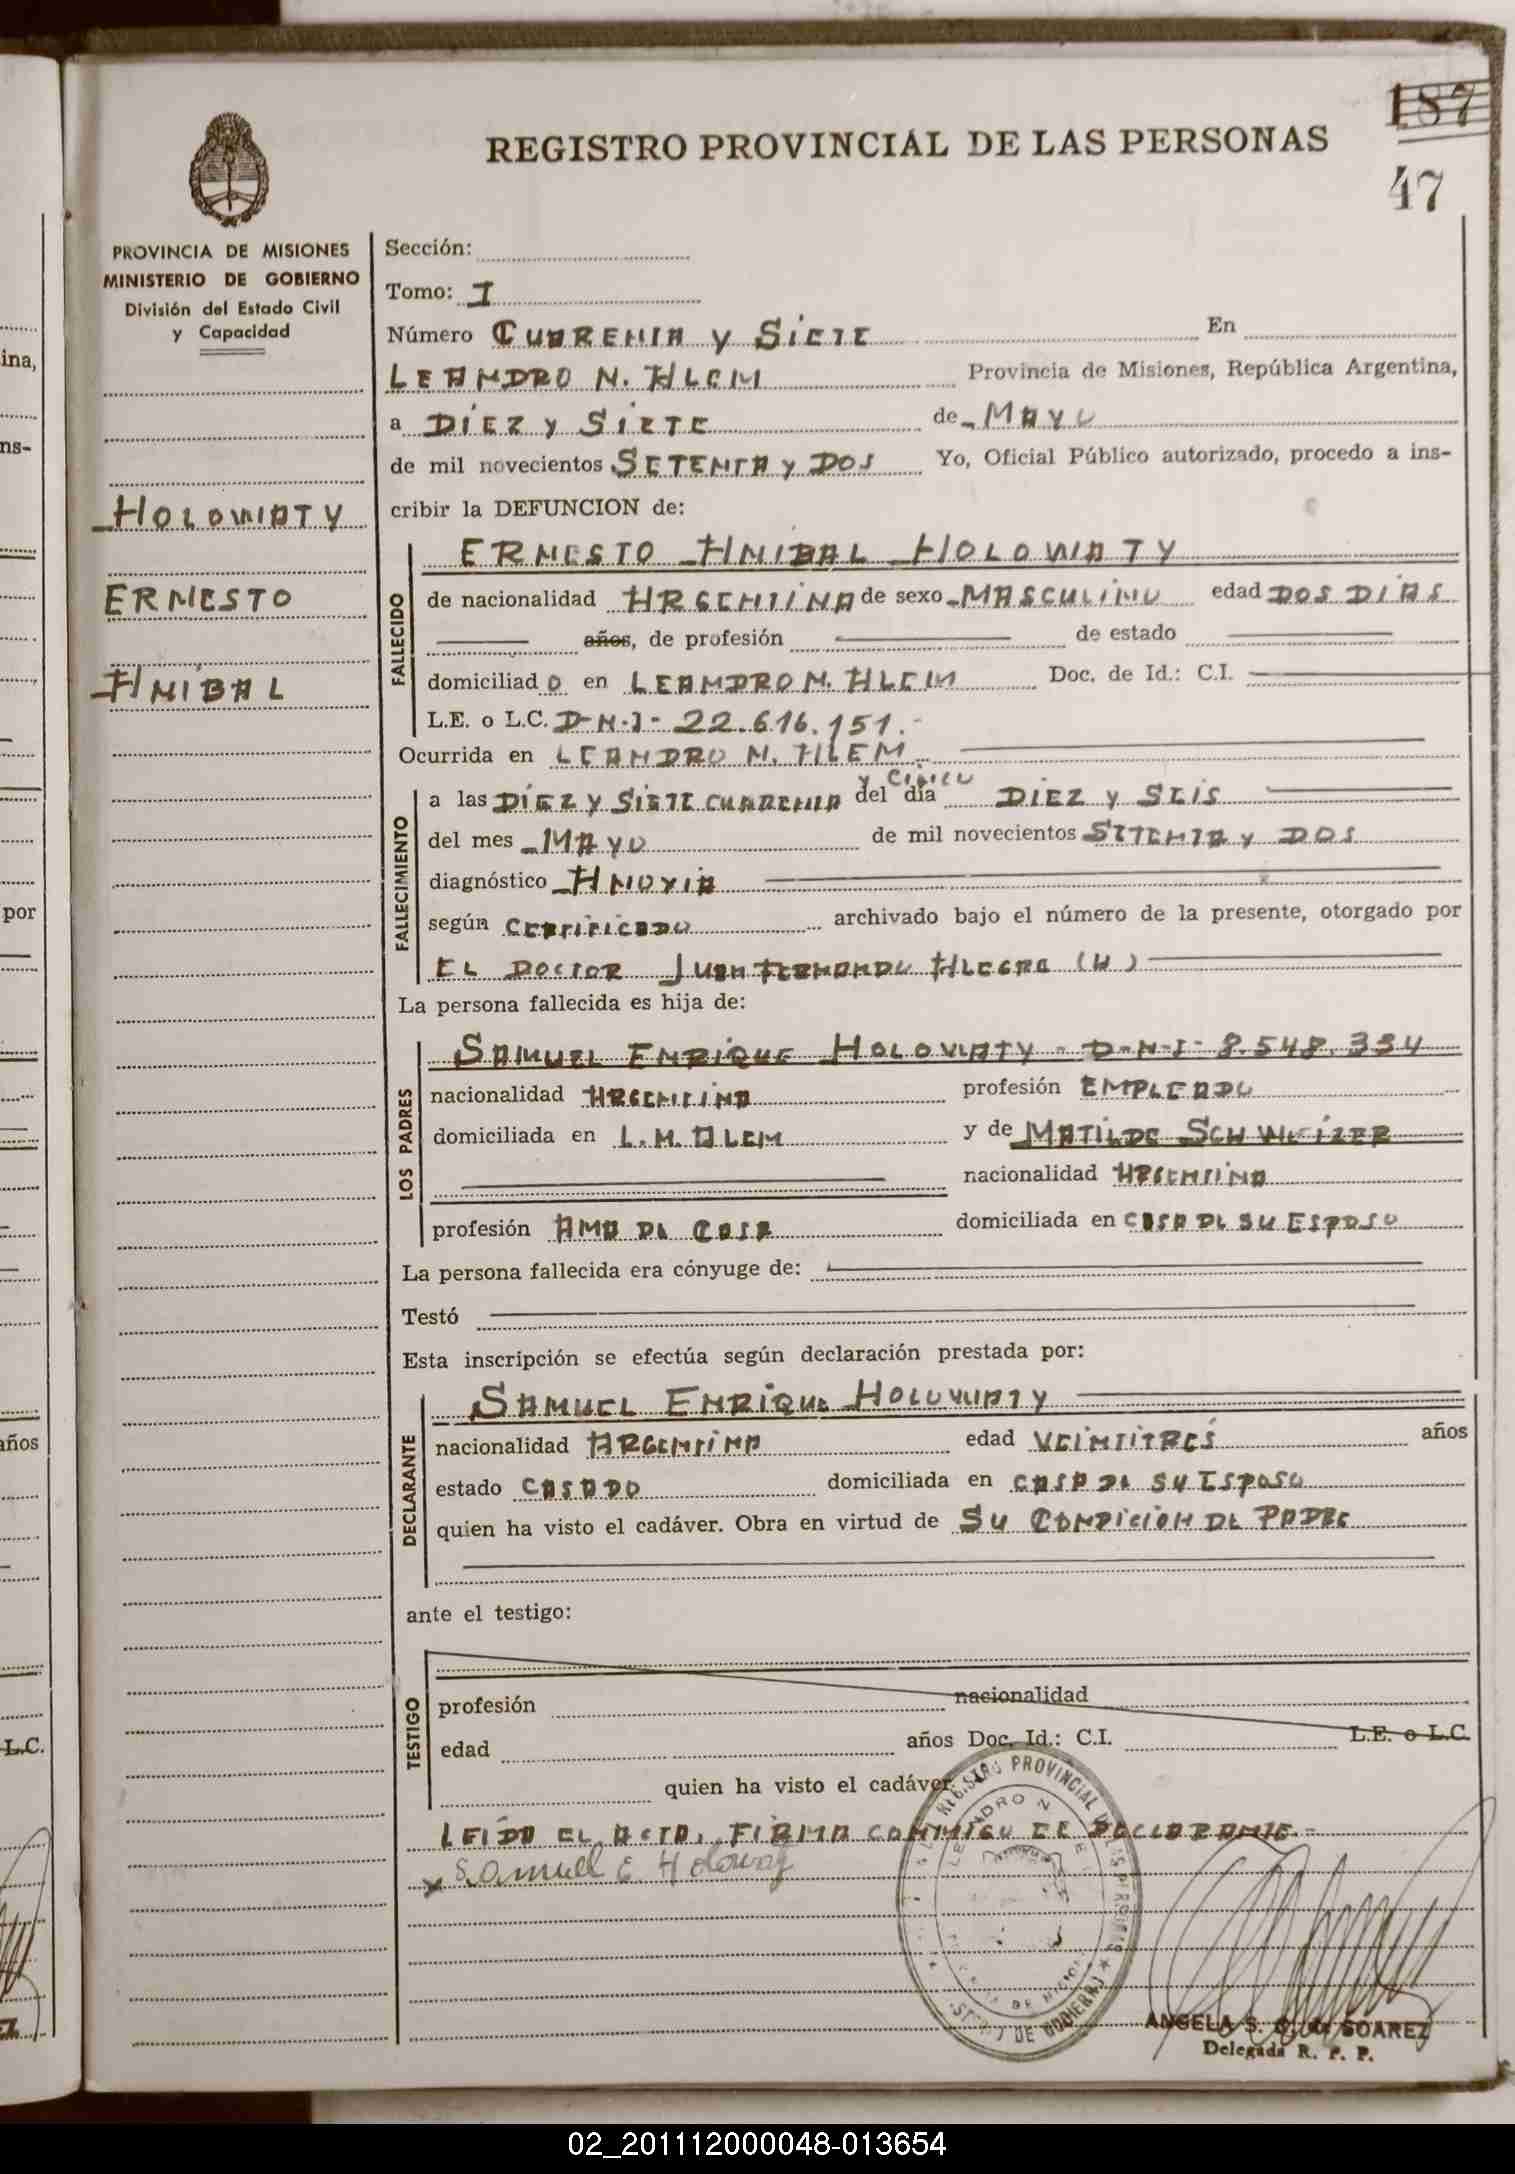 187
REGISTRO PROVINCIAL DE LAS PERSONAS
47
PROVINCIA DE MISIONES
MINISTERIO DE GOBIERNO
División del Estado Civil
y Capacidad
HOLOWATY
ERNESTO
ANIBAL
Sección:
Tomo: I
Número CUARENTA Y SIETE En
LEANDRO N. ALEM Provincia de Misiones, República Argentina,
a DIEZ Y SIETE de MAYO
de mil novecientos SETENTA Y DOS Yo, Oficial Público autorizado, procedo a ins-
cribir la DEFUNCION de:
FALLECIDO
ERNESTO ANIBAL HOLOWATY
de nacionalidad ARGENTINA de sexo MASCULINO edad DOS DIAS
años, de profesión de estado
domiciliado en LEANDRO N. ALEM Doc. de Id.: C.I.
L.E. o L.C. D-N-I- 22.616.151.-
Ocurrida en LEANDRO N. ALEM
FALLECIMIENTO
a las DIEZ Y SIETE CUARENTA Y CINCO del día DIEZ Y SEIS
del mes MAYO de mil novecientos SETENTA Y DOS
diagnóstico ANOXIA
según CERTIFICADO archivado bajo el número de la presente, otorgado por
EL DOCTOR JUAN FERNANDO ALEGRE (H)
La persona fallecida es hija de:
LOS PADRES
SAMUEL ENRIQUE HOLOWATY - D-N-I- 8.548.334
nacionalidad ARGENTINA profesión EMPLEADO
domiciliada en L.N. ALEM y de MATILDE SCHWEIZER
nacionalidad ARGENTINA
profesión AMA DE CASA domiciliada en CASA DE SU ESPOSO
La persona fallecida era cónyuge de:
Testó
Esta inscripción se efectúa según declaración prestada por:
DECLARANTE
SAMUEL ENRIQUE HOLOWATY
nacionalidad ARGENTINA edad VEINTITRES años
estado CASADO domiciliada en CASA DE SU ESPOSO
quien ha visto el cadáver. Obra en virtud de SU CONDICION DE PADRE
ante el testigo:
TESTIGO
profesión nacionalidad
edad años Doc. Id.: C.I. L.E. o L.C.
quien ha visto el cadáver.
LEIDA EL ACTA, FIRMA CONMIGO EL DECLARANTE.=
Samuel E. Holowaty
REGISTRO PROVINCIAL DE LAS PERSONAS
LEANDRO N.
DE GOBIERNO
ANGELA S. SOAREZ
Delegada R. P. P.
ina,
ns-
por
años
L.C.
02_201112000048-013654